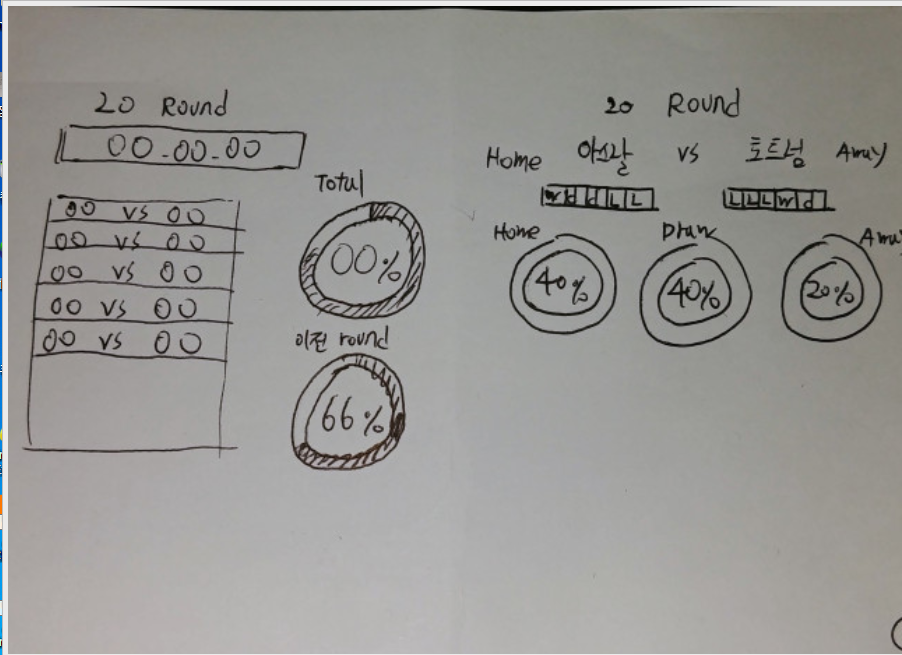 20 Round
00.00.00
00 vs 00
00 vs 00
00 vs 00
00 vs 00
00 vs 00
Total
00%
이전 round
66%
20 Round
Home 아스날 vs 토트넘 Away
W d d L L
L L L W d
Home Draw Away
40% 40% 20%